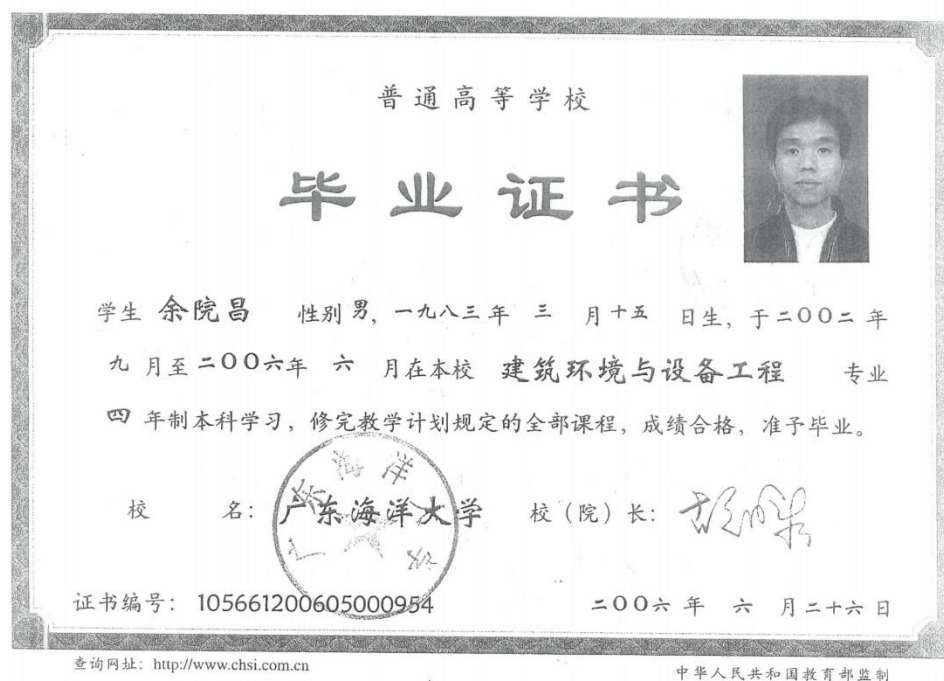 普通高等学校
毕业证书
学生 余院昌 性别 男, 一九八三年 三 月十五 日生, 于二〇〇二年
九 月至二〇〇六年 六 月在本校 建筑环境与设备工程 专业
四 年制本科学习, 修完教学计划规定的全部课程, 成绩合格, 准予毕业。
校 名: 广东海洋大学 校(院)长:
广东海洋大学
证书编号: 105661200605000954 二〇〇六年 六 月二十六日
查询网址: http://www.chsi.com.cn 中华人民共和国教育部监制